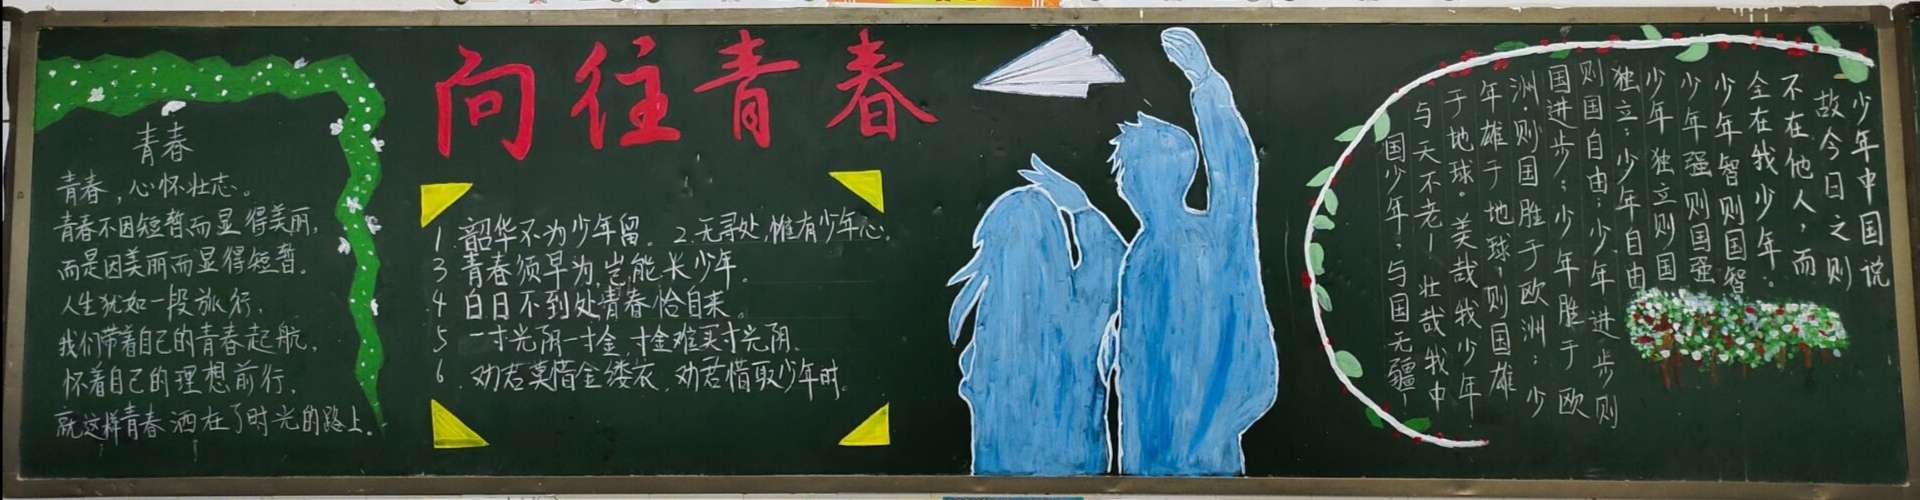 向往青春
青春
青春，心怀壮志。
青春不因短暂而显得美丽，
而是因美丽而显得短暂。
人生犹如一段旅行，
我们带着自己的青春起航，
怀着自己的理想前行，
就这样青春洒在了时光的路上。
1 韶华不为少年留。 2.无寻处，惟有少年心。
3 青春须早为，岂能长少年。
4 白日不到处青春恰自来。
5 一寸光阴一寸金，寸金难买寸光阴。
6. 劝君莫惜金缕衣，劝君惜取少年时。
少年中国说
故今日之则
不在他人，而
全在我少年。
少年智则国智
少年强则国强
少年独立则国
独立；少年自由
则国自由；少年进步则
国进步；少年胜于欧
洲，则国胜于欧洲；少
年雄于地球，则国雄
于地球。美哉我少年
与天不老！壮哉我中
国少年，与国无疆！